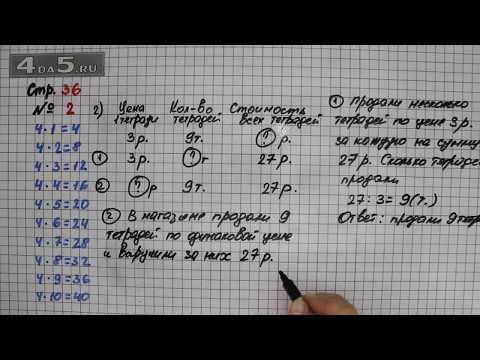 4DA5.RU
Стр. 36
№ 2
4 · 1 = 4
4 · 2 = 8
4 · 3 = 12
4 · 4 = 16
4 · 5 = 20
4 · 6 = 24
4 · 7 = 28
4 · 8 = 32
4 · 9 = 36
4 · 10 = 40
2) Цена Кол-во Стоимость
1 тетради тетрадей всех тетрадей
3р. 9т. ? р.
1 3р. ? т 27р.
2 ? р 9т. 27р.
2 В магазине продали 9
тетрадей по одинаковой цене
и выручили за них 27р.
1 Продали несколько
тетрадей по цене 3р.
за каждую на сумму
27р. Сколько тетрадей
продали
27 : 3 = 9 (т.)
Ответ: продали 9 тетр